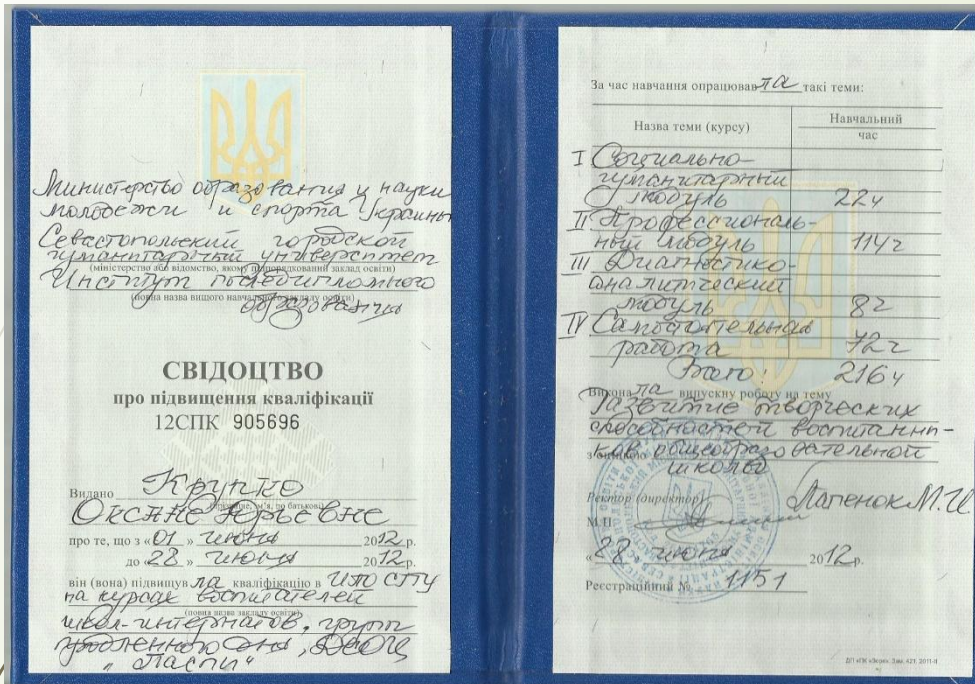 Министерство образования и науки
молодежи и спорта Украины
Севастопольский городской
гуманитарный университет
(міністерство або відомство, якому підпорядкований заклад освіти)
Институт последипломного
(повна назва вищого навчального закладу освіти)
образования
СВІДОЦТВО
про підвищення кваліфікації
12СПК 905696
Видано Крупко
Оксане Юрьевне
про те, що з «01» июня 2012 р.
до «28» июня 2012 р.
він (вона) підвищув ла кваліфікацію в ИПО СГГУ
на курсах воспитателей
(повна назва закладу освіти)
школ-интернатов, групп
продленного дня,
"Ласпи"
За час навчання опрацював ла такі теми:
Назва теми (курсу)
Навчальний
час
I Социально-
гуманитарный
модуль 22ч
II Профессиональ-
ный модуль 114ч
III Диагностико-
аналитический
модуль 8ч
IV Самостоятельная
работа 72ч
Итого: 216ч
Викона ла випускну роботу на тему
Развитие творческих
способностей воспитанни-
ков общеобразовательной
з оцінкою школы
Ректор (директор) Лапенок М.И
М.П.
«28» июня 2012 р.
Реєстраційний № 1151